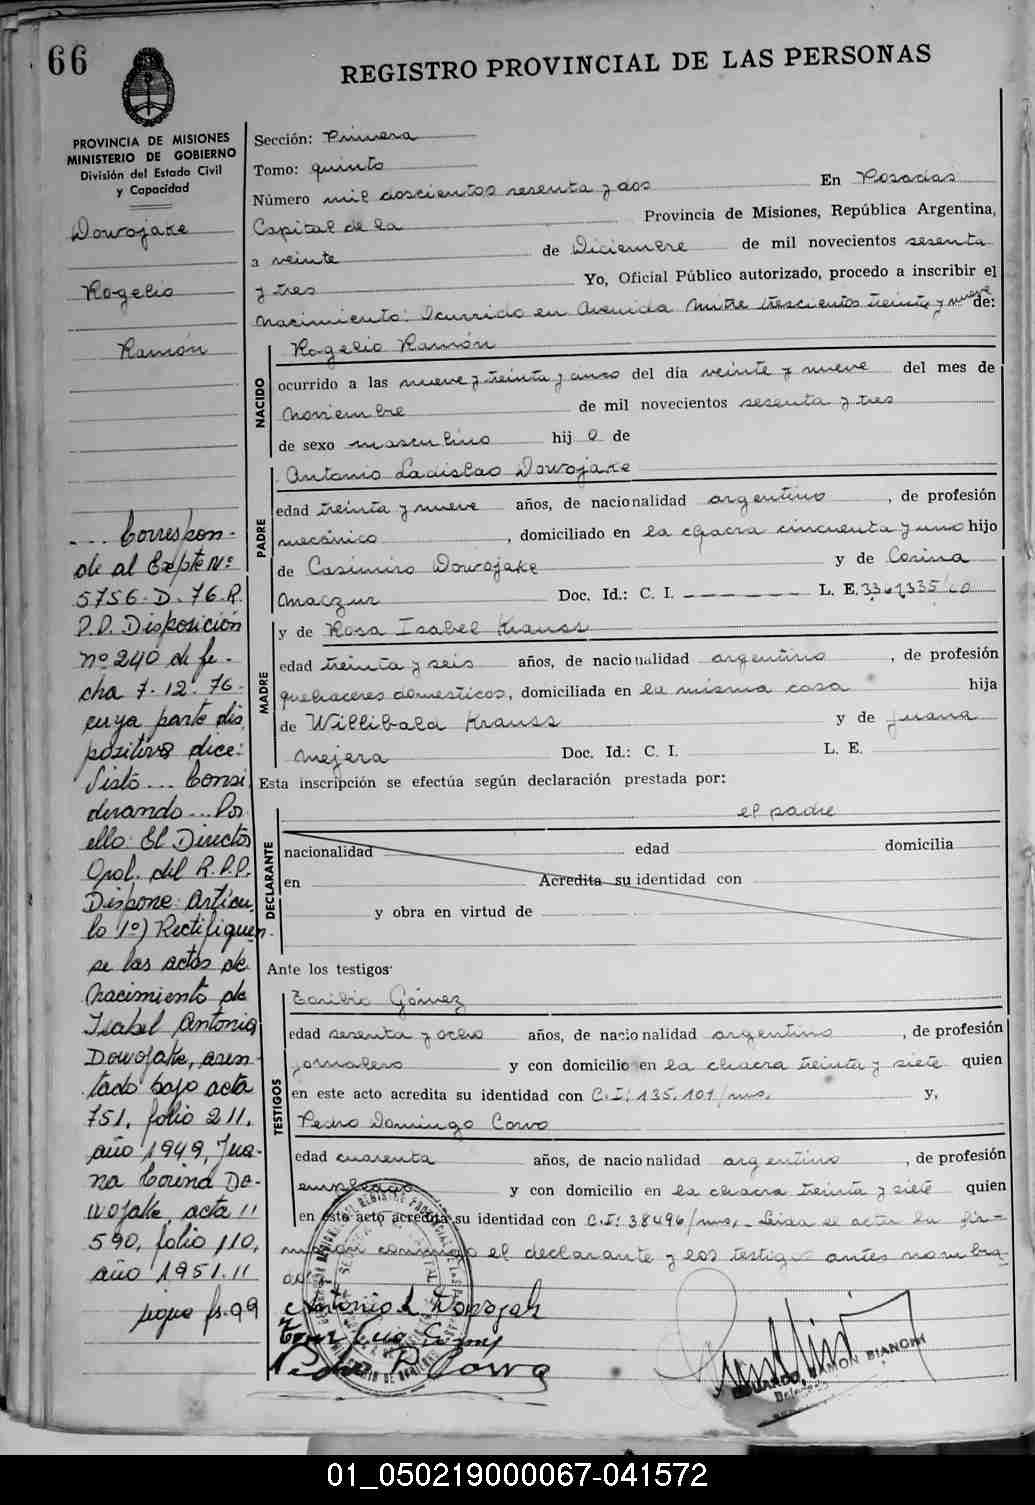 66
REGISTRO PROVINCIAL DE LAS PERSONAS
PROVINCIA DE MISIONES
MINISTERIO DE GOBIERNO
División del Estado Civil
y Capacidad
Dowojake
Rogelio
Ramón
... Correspon-
de al Expte Nº
5756-D-76-R.
P.P. Disposición
nº 240 de fe-
cha 7-12-76-
cuya parte dis
positiva dice:
Visto ... Consi
derando ... Por
ello: El Director
Gral. del R.P.P.
Dispone: Artícu-
lo 1º) Rectifíquen-
se las actas de
nacimiento de
Isabel Antonia
Dowojake, asen-
tado bajo acta
751, folio 211,
año 1949, Jua-
na Corina Do-
wojake, acta
590, folio 110,
año 1951.
sigue fs. 99
Sección: Primera
Tomo: quinto
Número mil doscientos sesenta y dos En Posadas
Capital de la Provincia de Misiones, República Argentina,
a veinte de Diciembre de mil novecientos sesenta
y tres Yo, Oficial Público autorizado, procedo a inscribir el
nacimiento: Ocurrido en Avenida Mitre trescientos treinta y nueve de:
NACIDO
Rogelio Ramón
ocurrido a las nueve y treinta y cinco del día veinte y nueve del mes de
Noviembre de mil novecientos sesenta y tres
de sexo masculino hij o de
PADRE
Antonio Ladislao Dowojake
edad treinta y nueve años, de nacionalidad argentino, de profesión
mecánico, domiciliado en la chacra cincuenta y uno hijo
de Casimiro Dowojake y de Corina
Maczur Doc. Id.: C. I. - - - - - - - L. E.
MADRE
y de Rosa Isabel Krauss
edad treinta y seis años, de nacionalidad argentino, de profesión
quehaceres domesticos, domiciliada en la misma casa hija
de Willibald Krauss y de Juana
Mejera Doc. Id.: C. I. L. E.
Esta inscripción se efectúa según declaración prestada por:
el padre
DECLARANTE
nacionalidad edad domicilia
en Acredita su identidad con
y obra en virtud de
Ante los testigos
TESTIGOS
Toribio Gómez
edad sesenta y ocho años, de nacionalidad argentino, de profesión
jornalero y con domicilio en la chacra treinta y siete quien
en este acto acredita su identidad con C.I: 135.101/mns. y,
Pedro Domingo Corvo
edad cuarenta años, de nacionalidad argentino, de profesión
empleado y con domicilio en la chacra treinta y siete quien
en este acto acredita su identidad con C.I: 38496/mns.- Leida el acta la fir-
man conmigo el declarante y los testigos antes nombra-
dos
Antonio L Dowojak
EDUARDO RAMON BIANCHI
01_050219000067-041572